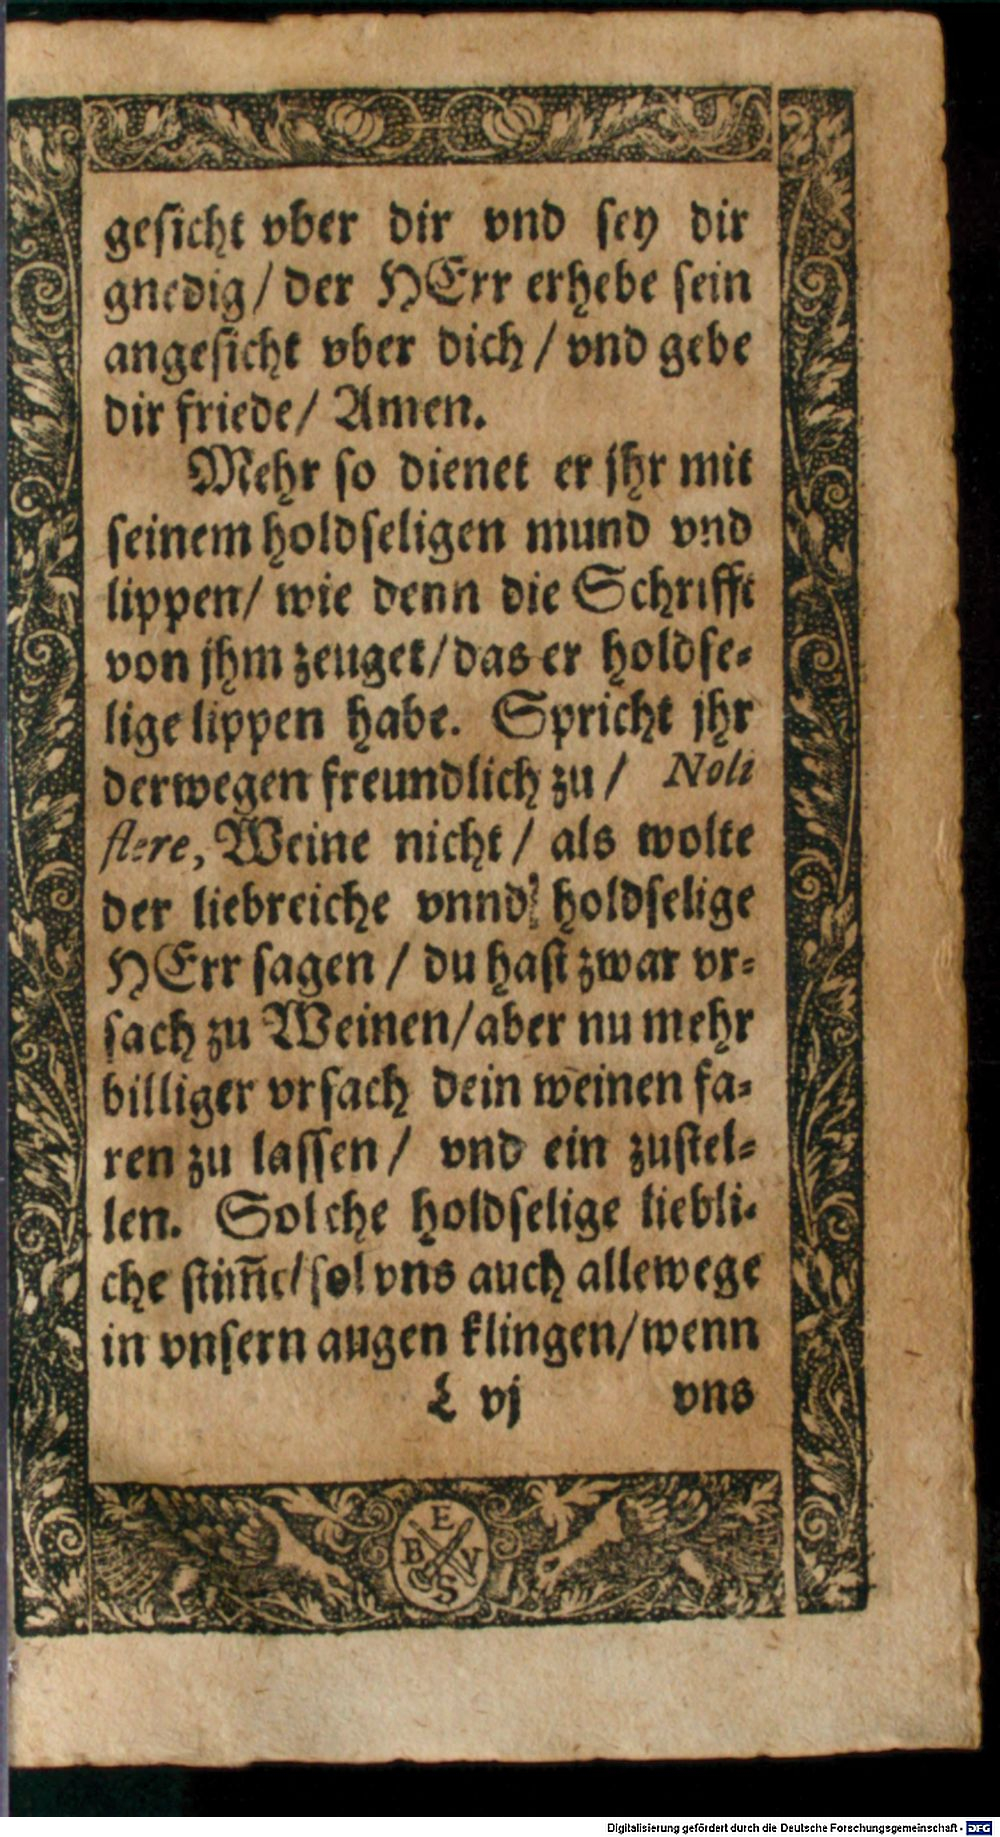 gesicht vber dir vnd sey dir
gnedig/ der HErr erhebe sein
angesicht vber dich/ vnd gebe
dir friede/ Amen.
Mehr so dienet er jhr mit
seinem holdseligen mund vnd
lippen/ wie denn die Schrifft
von jhm zeuget/ das er holdse-
lige lippen habe. Spricht jhr
derwegen freundlich zu/ Noli
flere, Weine nicht/ als wolte
der liebreiche vnnd holdselige
HErr sagen/ du hast zwar vr-
sach zu Weinen/ aber nu mehr
billiger vrsach dein weinen fa-
ren zu lassen/ vnd ein zustel-
len. Solche holdselige liebli-
che stim̄e/ sol vns auch allewege
in vnsern augen klingen/ wenn
L vj vns
E
B V
S
Digitalisierung gefördert durch die Deutsche Forschungsgemeinschaft - DFG